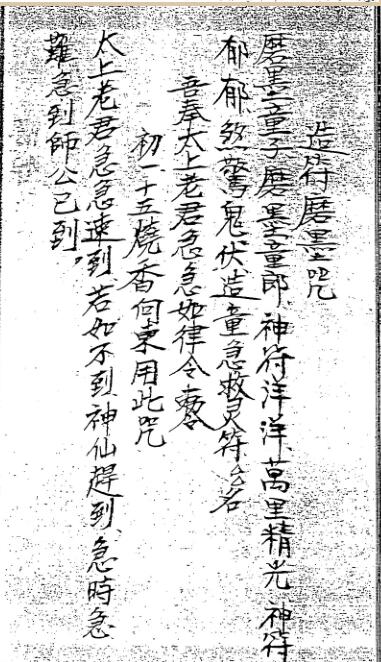 造符磨墨咒
磨墨童子磨墨童郎神符洋洋萬里精光神符
郁郁煞驚鬼伏造童急救灵符
吾奉太上老君急急如律令
初一十五燒香向東用此咒
太上老君急急速到若如不到神仙趕到急時急
難急到師公已到